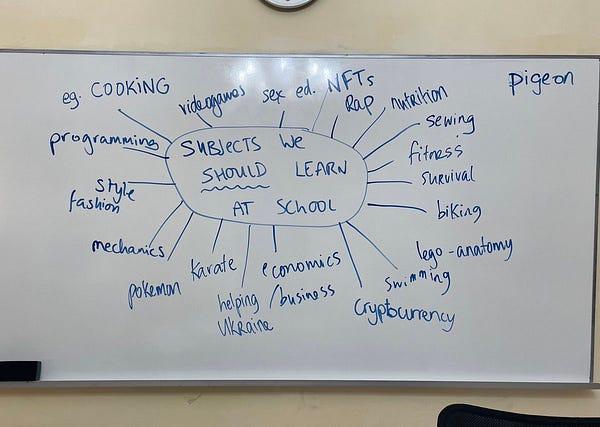 eg. COOKING
videogames
sex ed.
NFTs
Rap
nutrition
pigeon
sewing
programming
SUBJECTS WE
SHOULD LEARN
AT SCHOOL
fitness
survival
style
fashion
biking
mechanics
lego-anatomy
pokemon
karate
economics
/business
swimming
helping
Ukraine
cryptocurrency